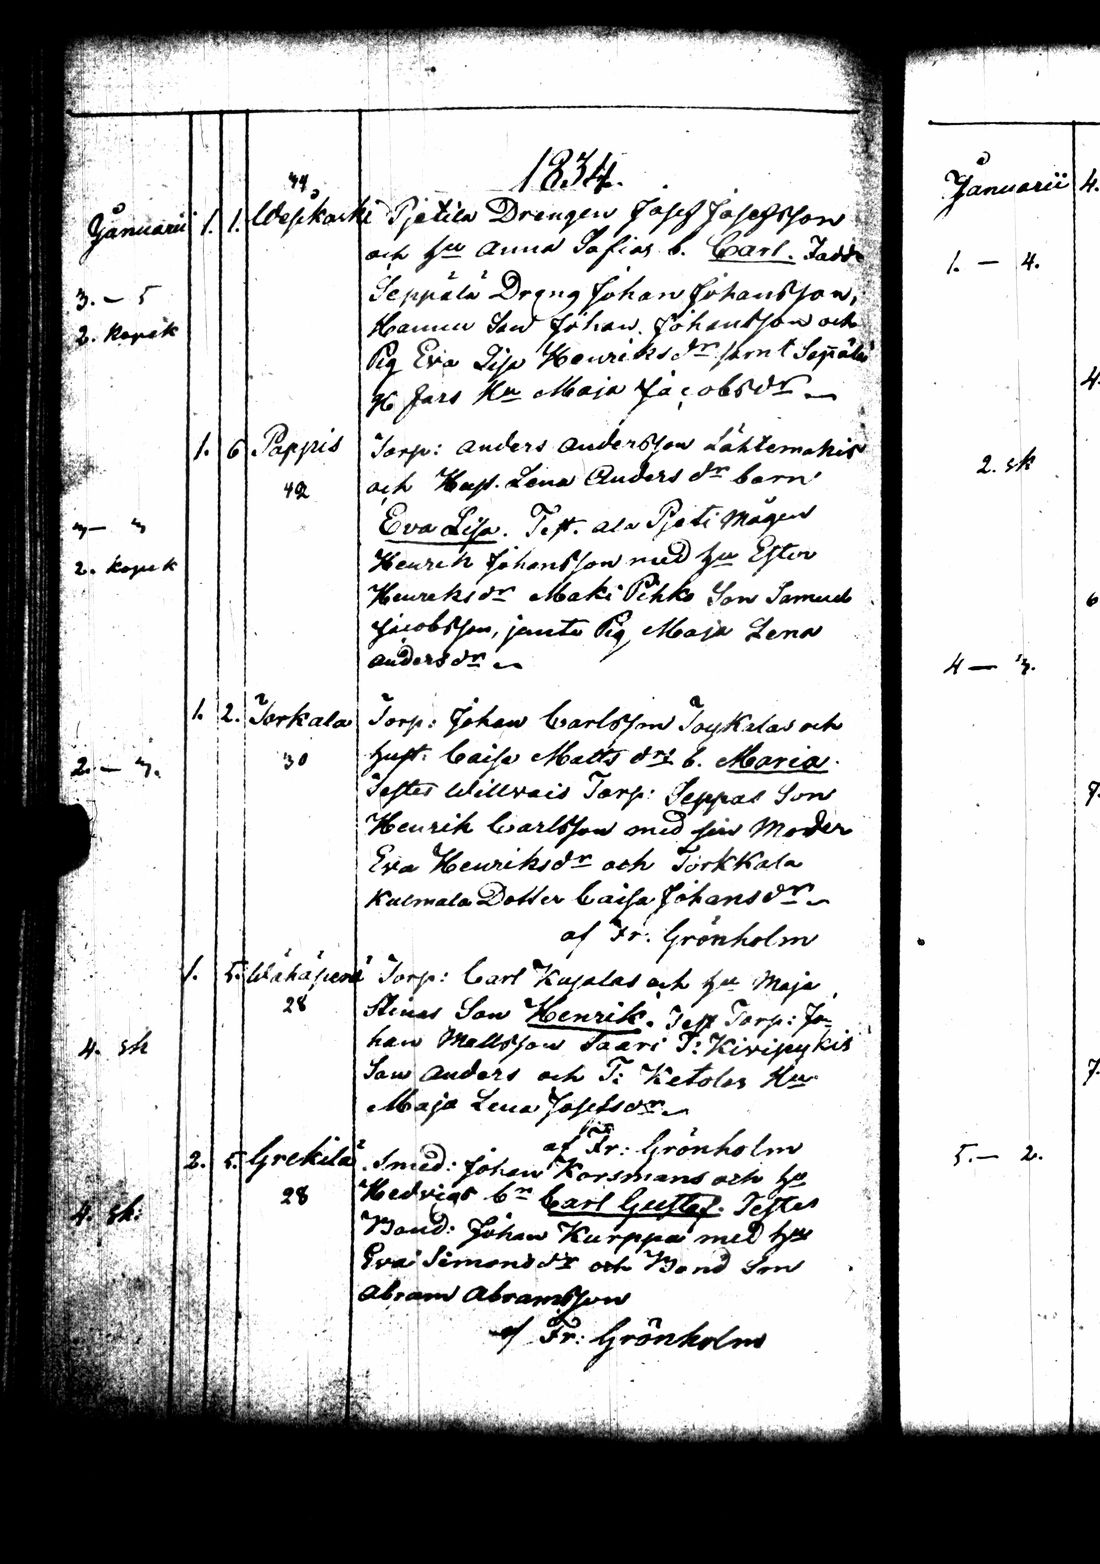 1834.
44,
Januarii 1. 1. Wepkoski Pjetila Drengen Josef Josefsson
och hu Anna Sofias b. Carl. Fadd:
3. — 5 Seppälä Dreng Johan Johansson,
2. kopek Hannu Son Johan Johansson och
Pig Eva Lisa Henriksdr samt Seppälä
H Jars Hu Maja Jacobsdr
1. 6 Pappis Torp: Anders Andersson Lähtemäkis
42 och Hust. Lena Andersdr barn
Eva Lisa. Test. Ala Pjeti Mågen
2. kopek Henrik Johansson med hu Ester
Henriksdr Maki Pihko Son Samuel
Jacobsson, jemte Pig Maja Lena
Andersdr
1. 2. Torkala Torp: Johan Carlsson Toykalas och
30 hust: Caisa Mattsdr b. Maria.
2. — 7. Testes Willvais Torp: Seppas Son
Henrik Carlsson med sin Moder
Eva Henriksdr och Torkkala
Kulmala Dotter Caisa Johansdr
af Fr: Grönholm
1. 5. Wähäperä Torp: Carl Kujalas och hu Maja
28 Stinas Son Henrik. Test Torp: Jo-
4. sk han Mattsson Saari T: Kivipykis
Son Anders och T: Ketolas Hu
Maja Lena Josefsdr
af Fr: Grönholm
2. 5. Grekilä Smed: Johan Korsmans och hu
28 Hedvigs br Carl Gustaf. Testes
4. sk: Bond: Johan Kurppa med hu
Eva Simonsdr och Bond Son
Abram Abramsson
af Fr: Grönholm
Januarii 4.
1. — 4.
4.
2. sk
6
4 — 3.
7.
7.
5. — 2.